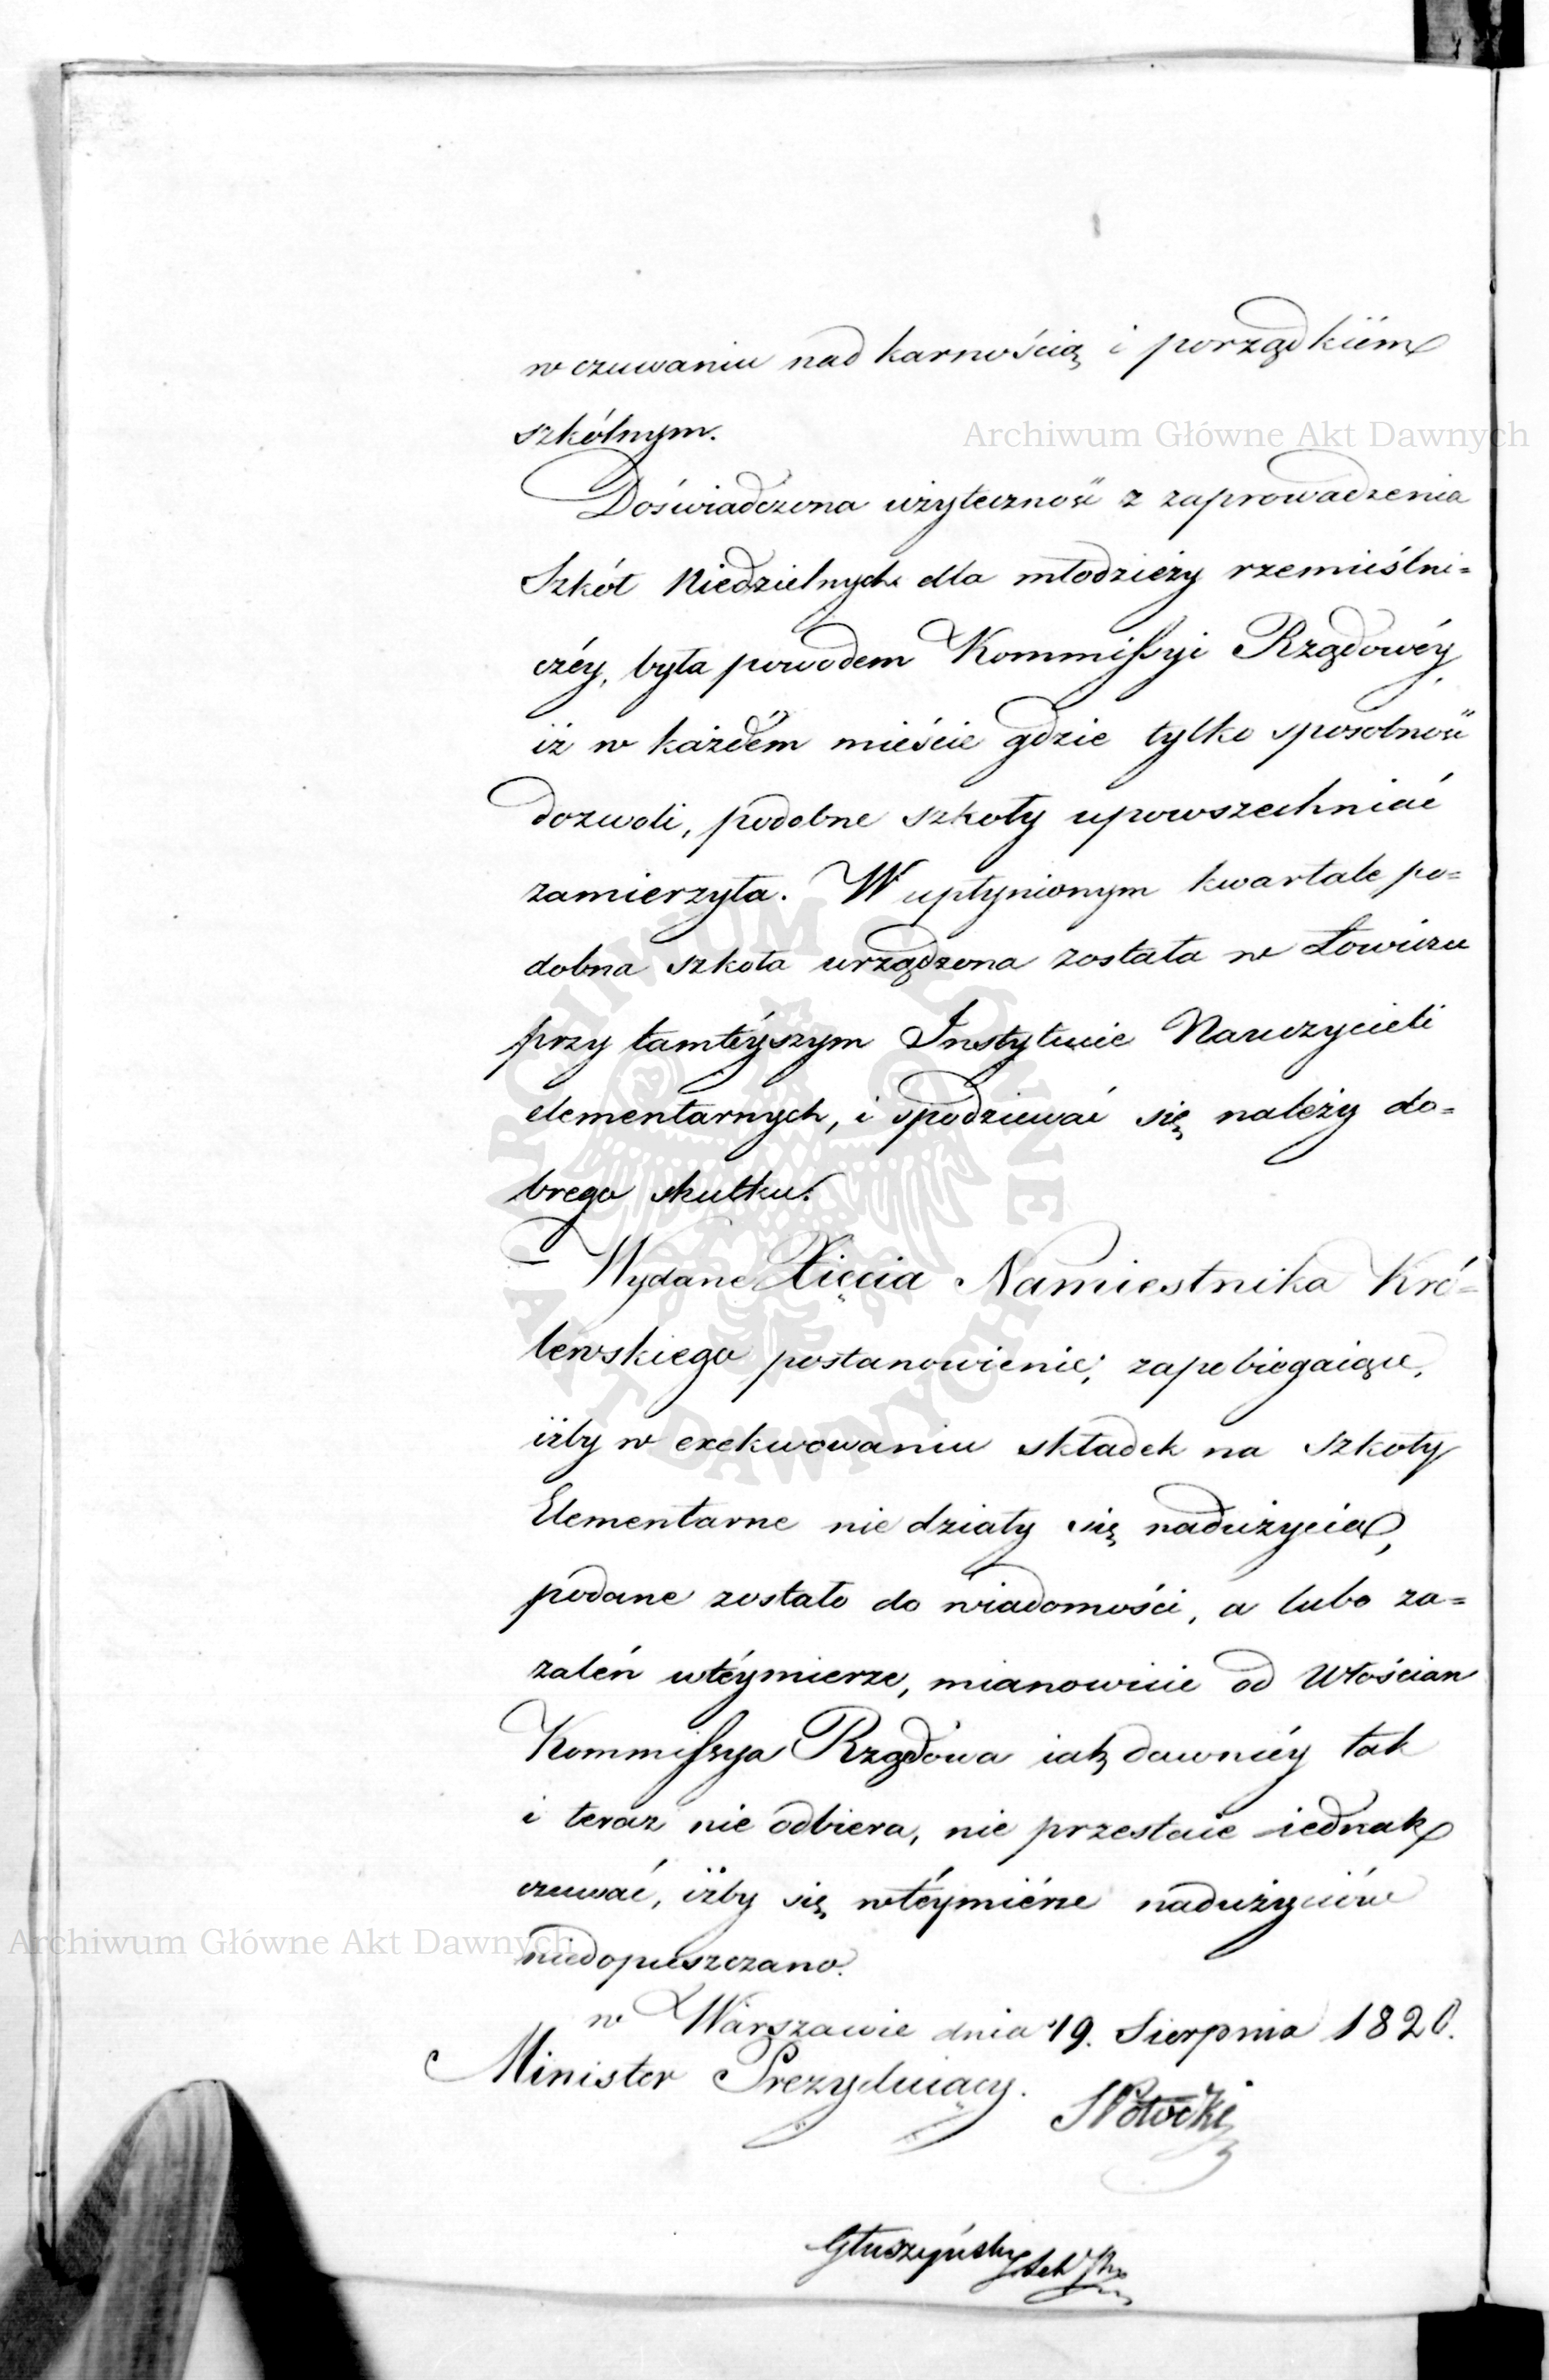 w czuwaniu nad karnością i porządkiem
szkólnym.
Archiwum Główne Akt Dawnych
Doświadczona użyteczność z zaprowadzenia
Szkół Niedzielnych dla młodzieży rzemieślni=
czéy, była powodem Kommissyi Rządowéy,
iż w każdém mieście gdzie tylko sposobność
dozwoli, podobne szkoły upowszechniać
zamierzyła. W upłynionym kwartale po=
dobna szkoła urządzona została w Łowiczu
przy tamtéyszym Instytucie Nauczycieli
elementarnych, i spodziewać się należy do=
brego skutku.
Wydane Xięcia Namiestnika Kró=
lewskiego postanowienie, zapobiegaiące,
iżby w exekwowaniu składek na szkoły
Elementarne nie działy się nadużycia,
podane zostało do wiadomości, a lubo za=
żaleń wtéymierze, mianowicie od Włościan
Kommissya Rządowa iak dawniéy tak
i teraz nie odbiera, nie przestaie iednak
czuwać, iżby się wtéymiérze nadużyciów
Archiwum Główne Akt Dawnych
niedopuszczano.
w Warszawie dnia 19. Sierpnia 1820.
Minister Prezyduiący.
SPotocki
Głuszyński Sek
ARCHIWUM GŁÓWNE AKT DAWNYCH